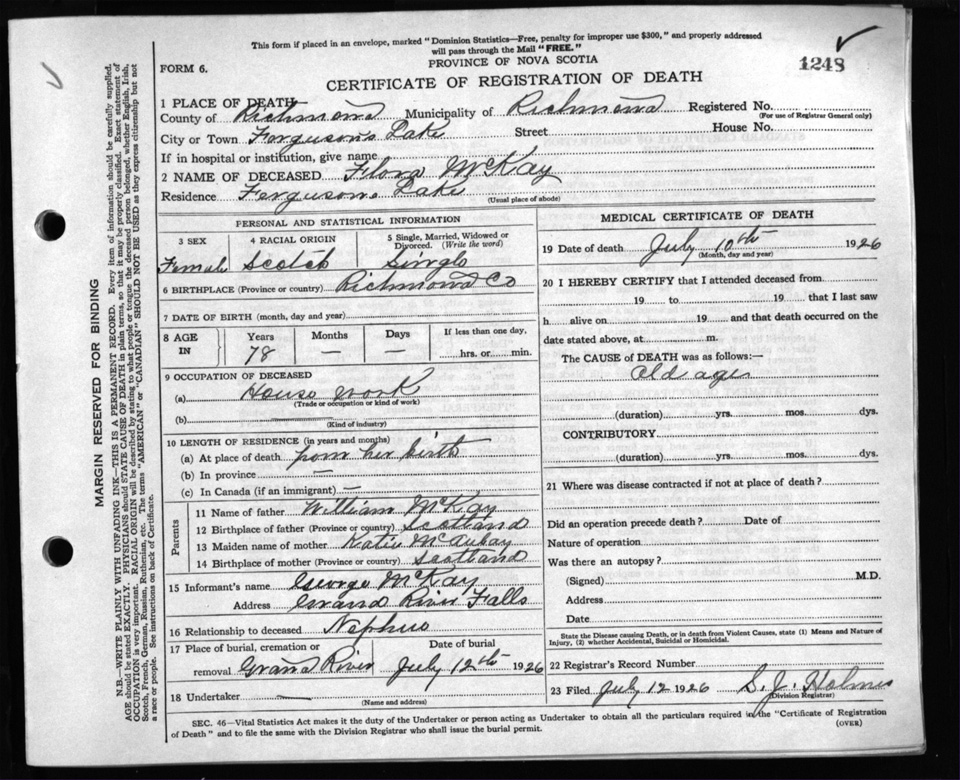 This form if placed in an envelope, marked "Dominion Statistics—Free, penalty for improper use $300," and properly addressed
will pass through the Mail "FREE."
PROVINCE OF NOVA SCOTIA
FORM 6.
1248
CERTIFICATE OF REGISTRATION OF DEATH
1 PLACE OF DEATH
County of Richmond Municipality of Richmond Registered No.
(For use of Registrar General only)
City or Town Fergusons Lake Street House No.
If in hospital or institution, give name
2 NAME OF DECEASED Flora McKay
Residence Fergusons Lake
(Usual place of abode)
PERSONAL AND STATISTICAL INFORMATION
3 SEX 4 RACIAL ORIGIN 5 Single, Married, Widowed or Divorced. (Write the word)
Female Scotch Single
6 BIRTHPLACE (Province or country) Richmond Co
7 DATE OF BIRTH (month, day and year)
8 AGE IN Years Months Days If less than one day,
78 — — hrs. or min.
9 OCCUPATION OF DECEASED
(a) House work
(Trade or occupation or kind of work)
(b)
(Kind of industry)
10 LENGTH OF RESIDENCE (in years and months)
(a) At place of death from her birth
(b) In province —
(c) In Canada (if an immigrant) —
Parents
11 Name of father William McKay
12 Birthplace of father (Province or country) Scotland
13 Maiden name of mother Katie
14 Birthplace of mother (Province or country) Scotland
15 Informant's name George McKay
Address Grand River Falls
16 Relationship to deceased Nephew
17 Place of burial, cremation or removal Date of burial
Grand River July 12th 1926
18 Undertaker —
(Name and address)
MEDICAL CERTIFICATE OF DEATH
19 Date of death July 10th 1926
(Month, day and year)
20 I HEREBY CERTIFY that I attended deceased from
19 to 19 that I last saw
h alive on 19 and that death occurred on the
date stated above, at m.
The CAUSE of DEATH was as follows:—
Old age
(duration) yrs. mos. dys.
CONTRIBUTORY
(duration) yrs. mos. dys.
21 Where was disease contracted if not at place of death?
Did an operation precede death? Date of
Nature of operation
Was there an autopsy?
(Signed) M.D.
Address
Date
State the Disease causing Death, or in death from Violent Causes, state (1) Means and Nature of
Injury, (2) whether Accidental, Suicidal or Homicidal.
22 Registrar's Record Number
23 Filed July 12 1926 S. J. Holmes
(Division Registrar)
SEC. 46—Vital Statistics Act makes it the duty of the Undertaker or person acting as Undertaker to obtain all the particulars required in the "Certificate of Registration
of Death" and to file the same with the Division Registrar who shall issue the burial permit.
(OVER)
MARGIN RESERVED FOR BINDING
N.B.—WRITE PLAINLY WITH UNFADING INK—THIS IS A PERMANENT RECORD. Every item of information should be carefully supplied.
AGE should be stated EXACTLY. PHYSICIANS should STATE CAUSE OF DEATH in plain terms, so that it may be properly classified. Exact statement of
OCCUPATION is very important. RACIAL ORIGIN will be described by stating to what people or tongue the deceased person belonged, whether English, Irish,
Scotch, French, German, Russian, Ruthenian, etc. The terms "AMERICAN" or "CANADIAN" SHOULD NOT BE USED as they express citizenship but not
a race or people. See instructions on back of Certificate.